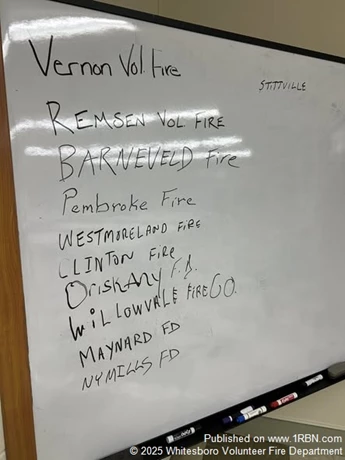 Vernon Vol. Fire
STITTVILLE
REMSEN VOL FIRE
BARNEVELD Fire
Pembroke Fire
WESTMORELAND FIRE
CLINTON FIRE
OrisKANy F.D.
WILLOWVALE FIRE CO.
MAYNARD FD
NYMILLS FD
Published on www.1RBN.com
© 2025 Whitesboro Volunteer Fire Department